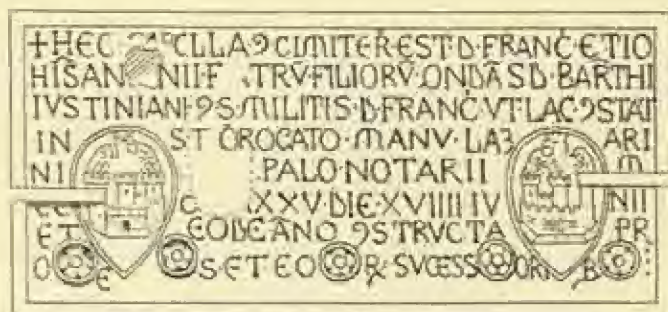 +HEC CLLA·9CIMITER̄·EST·D·FRANC̄·ETIO
HIS̄AN NII·F TRV̄·FILIORV̄·ONDĀS D·BARTHI
IVSTINIANI·9S·MILITIS·D·FRANC̄·VT·LAC·9STAT
IN ST ŌROGATO·MANV·LAZ ARI
NI PALO·NOTARII M
C XXV·DIE·XVIIII IV NII
ET EODĒANO 9STRVCTA PR
O E S·ET EO ꝶ SVCESS ORI B